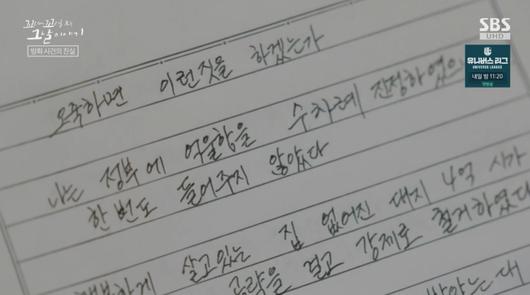 꼬리에 꼬리를 무는 그날 이야기
방화 사건의 진실
SBS
UHD
유니버스 리그
UNIVERSE LEAGUE
내일 밤 11:20
오죽하면 이런짓을 하겠는가
나는 정부에 억울함을 수차례 진정하였으
한 번도 들어주지 않았다
하게 살고있는 집 없어진 대지 4억 시가
공략을 걸고 강제로 철거하였다